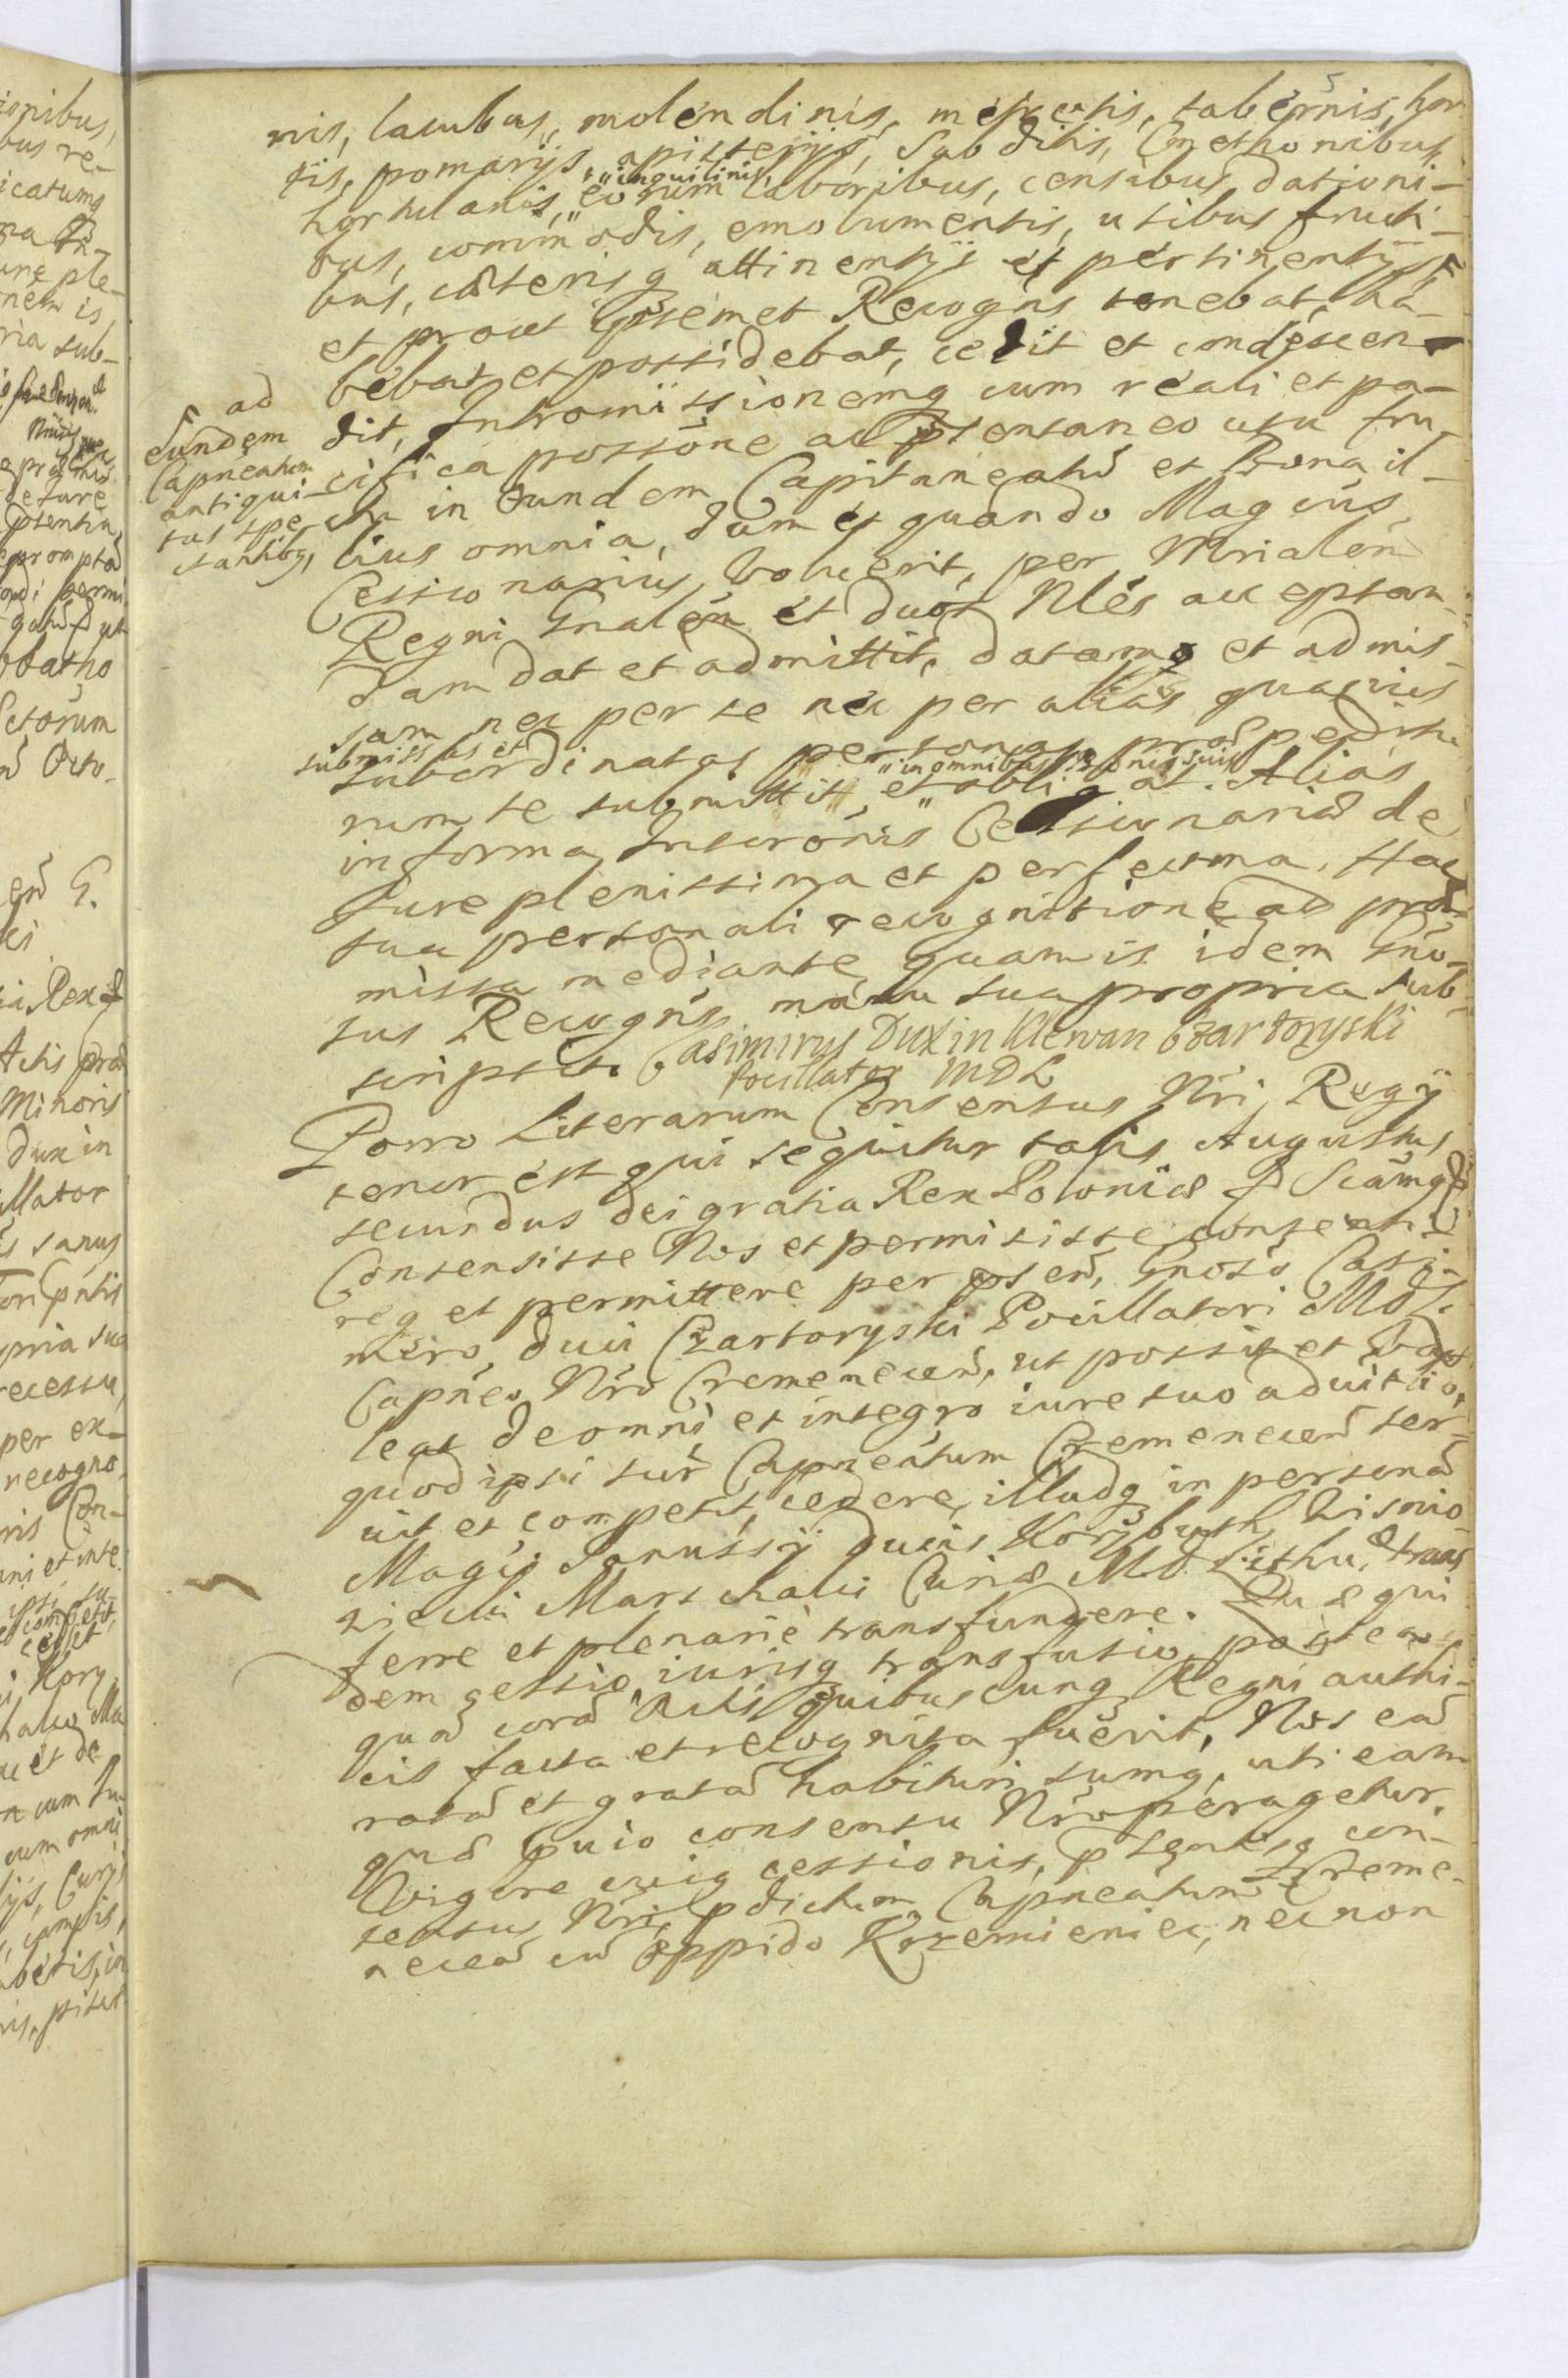 nis, lacubus, molendinis, mercatis, tabernis, hor
tis, pomarijs, apisterijs, Subditis, Cmethonibus
hortulanis, "inquilinis, eorum laboribus, censibus dationi-
bus, commodis, emolumentis, utibus fructi-
bus, cæterisq attinentijs et pertinentijs
et prout ipsemet Recogns tenebat, ha-
bebat et possidebat, cedit et condescen-
dit, Intromissionemq cum reali et pa-
cifica possõne ac pñsentaneo usu fru-
ctu in eundem Capitaneatũ et Bona il-
lius omnia, dum et quando Magcus
Cessionarius, voluerit, per Mrialem
Regni Gnalem et duos Nles acceptan-
dam dat et admittit, datamq et admis-
sam nec per se nec per alias quasvis
submissas et
subordinatas personas impedituram
rum se submittit, "in omnibus bonis suis et obligat. Alias
in forma Inscronis Cessionariæ de
Jure plenissima et perfectima. Hac
sua personali recognitione ad præ-
missa mediante, quam is idem Gño-
sus Recogns, manu sua propria sub-
scripsit. Casimirus Dux in Klewan Czartoryski
Pocillator MDL
Porro Literarum Consensus Nri Regij
tenor est qui sequitur talis Augustus
secundus dei gratia Rex Poloniæ
Consensisse Nos et permisisse, consenti-
req et permittere per psen, Gnoso Casi-
miro, duci Czartoryski Pocillatori MDL.
Capneo Nro Cremenecen, ut possit et va-
leat de omni et integro iure suo aduitali,
quod ipsi sup Capneatum Cremenecen ser-
uit et competit, cedere, illudq in personã
Magci Janussij Ducis Korybuth, Wisnio-
wiecki Marschalci Curiæ MD Lithu, trans
ferre et plenarie transfundere. Quæ qui
dem cessio, iurisq transfusio, postea-
quã corã Actis quibuscunq Regni authi-
cis facta et recognita fuerit, Nos eã
ratã et gratã habituri sumq, uti eam
quæ puio consensu Nro peragetur.
Vigore cuiq cessionis, psentisq con-
sensus Nri, pdictum Capneatum Creme-
necen cũ oppido Krzemieniec, necnon
ad
eundem
Capneatum
antiqui-
tus spe
ctantibq,